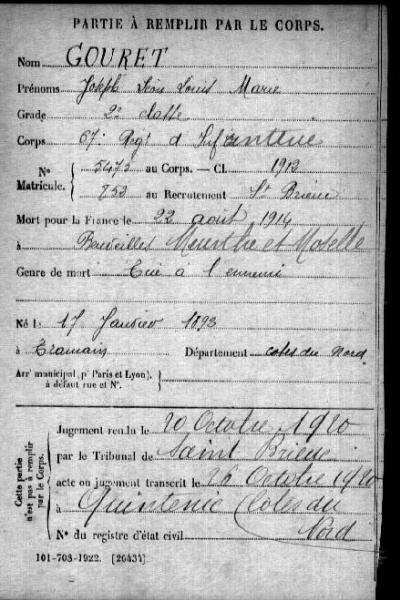 PARTIE À REMPLIR PAR LE CORPS.
Nom GOURET
Prénoms Joseph Léon Louis Marie
Grade 2e classe
Corps 67e Regt d Infanterie
N° Matricule. 5473 au Corps. — Cl. 1913
852 au Recrutement St Brieuc
Mort pour la France le 22 août 1914
à Meurthe et Moselle
Genre de mort Tué à l'ennemi
Né le 17 Janvier 1893
à Tramain Département cotes du Nord.
Arr^t municipal (p^r Paris et Lyon), à défaut rue et N°.
Cette partie n'est pas à remplir par le Corps.
Jugement rendu le 20 Octobre 1920
par le Tribunal de Saint Brieuc
acte ou jugement transcrit le 26 Octobre 1920
à Quintenic (Cotes du Nord)
N° du registre d'état civil
101-703-1922. [26434]